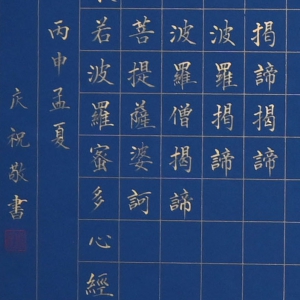 揭諦揭諦
波羅揭諦
波羅僧揭諦
菩提薩婆訶
若波羅蜜多心經
丙申孟夏
庆祝敬書